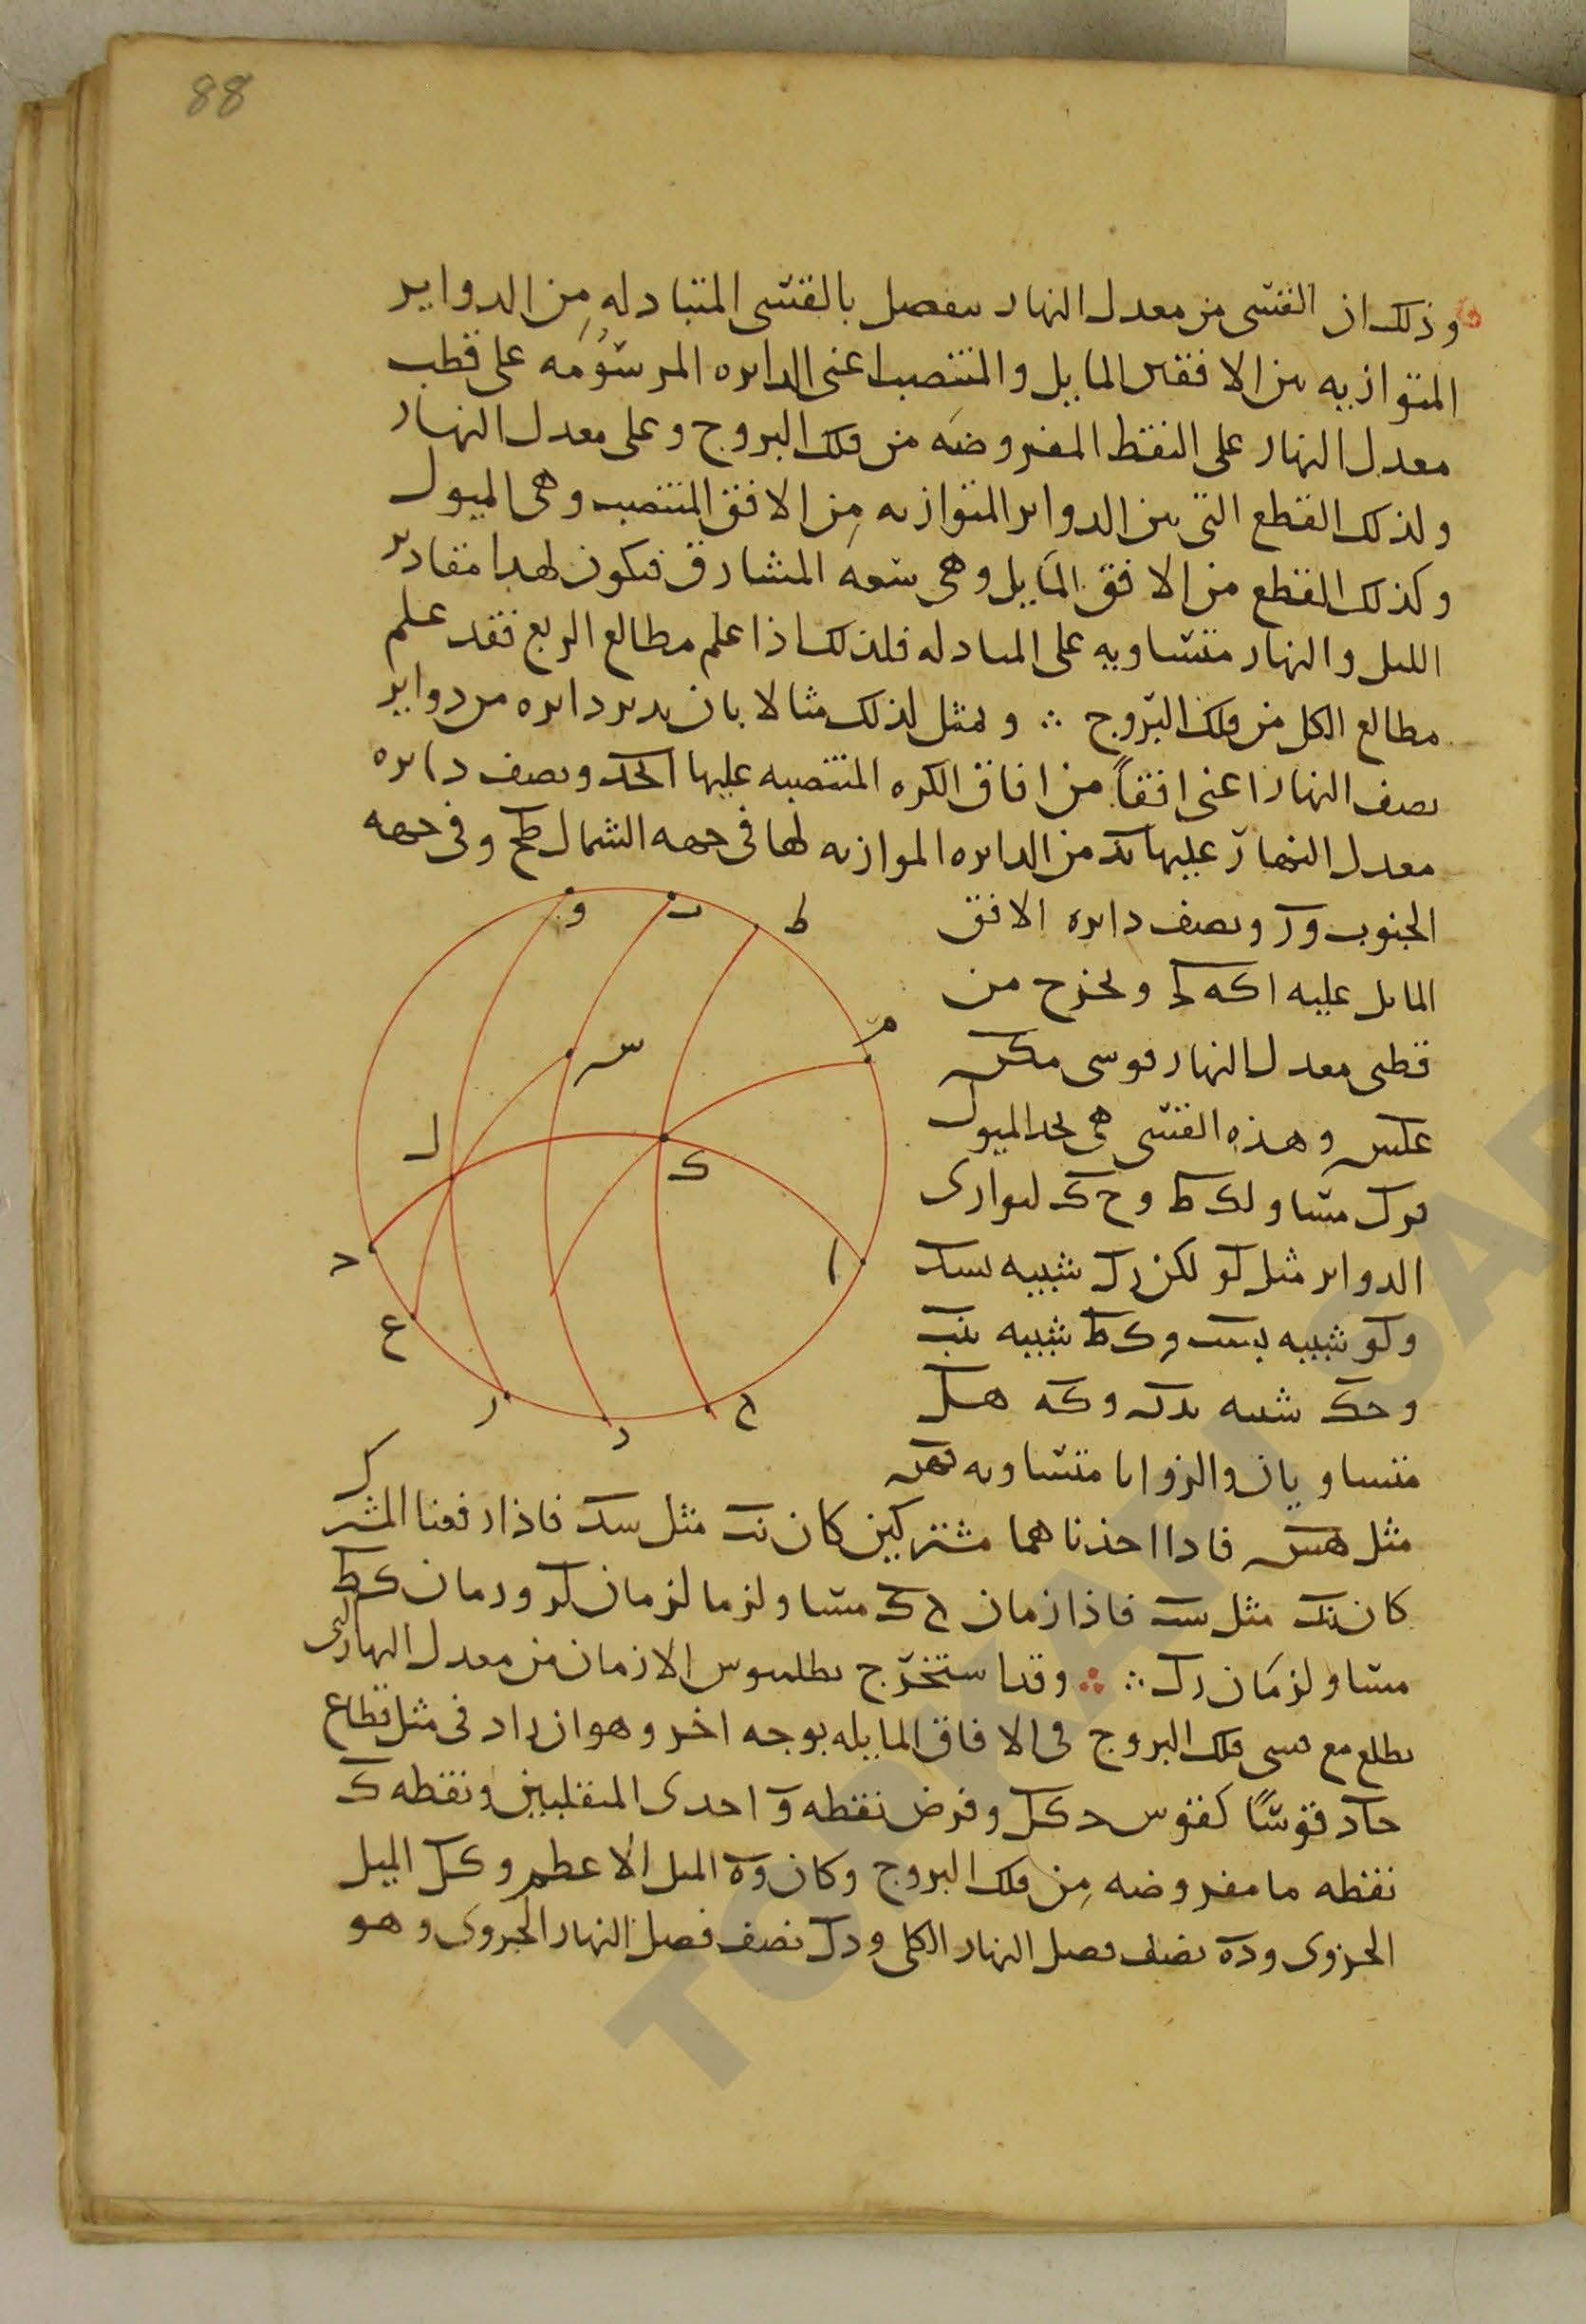 88
وذلك ان القسى من معدل النهار سفصل بالقسى المتبادله من الدواير
المتوازيه بين الافقين المايل والمنتصب اعنى الدايره المرسومه على قطب
معدل النهار على النقط المفروضه من فلك البروج وعلى معدل النهار
ولذلك القطع التى بين الدواير المتوازيه من الافق المنتصب وهى الميول
وكذلك القطع من الافق المايل وهى سعه المشارق فيكون لهذا مقادير
الليل والنهار متساويه على المبادله فلذلك اذا علم مطالع الربع فقد علم
مطالع الكل من فلك البروج ∴ ونمثل لذلك مثالا بان ندير دايره من دواير
نصف النهار اعنى افقاً من افاق الكره المنتصبه عليها ابجد ونصف دايره
معدل النهار عليها بد من الدايره الموازيه لها فى جهه الشمال طح وفى جهه
الجنوب ور ونصف دايره الافق
المايل عليه ا ك ه ل ونخرج من
قطبى معدل النهار قوسى مكس
علس وهذه القسى هى تحد الميول
فرل مساو لك ط وح ك لموازى
الدواير مثل لو لكن رل شبيه بسد
ولو شبيه بست وك ط شبيه بنب
وحك شبيه بدن وكه هل
متساويان والزوايا متساويه فهن
مثل هس فاذا اخذناهما مشتركين كان نب مثل سد فاذا رفعنا المشترك
كان ند مثل سب فاذا زمان ح ك مساو لزمان لو وزمان ك ط
مساو لزمان رل ∴ وقد استخرج بطلميوس الازمان من معدل النهار التى
تطلع مع قسى فلك البروج فى الافاق المايله بوجه اخر وهو ان زاد فى مثل قطاع
حاد قوسًا كقوس حكل وفرض نقطه و احدى المنقلبين ونقطه ك
نقطه ما مفروضه من فلك البروج وكان وه الميل الاعظم وكل الميل
الجزوى وده نصف فصل النهار الكلى ودل نصف فصل النهار الجزوى وهو
و
ب
ط
م
س
ل
ك
ا
د
ع
ر
د
ح